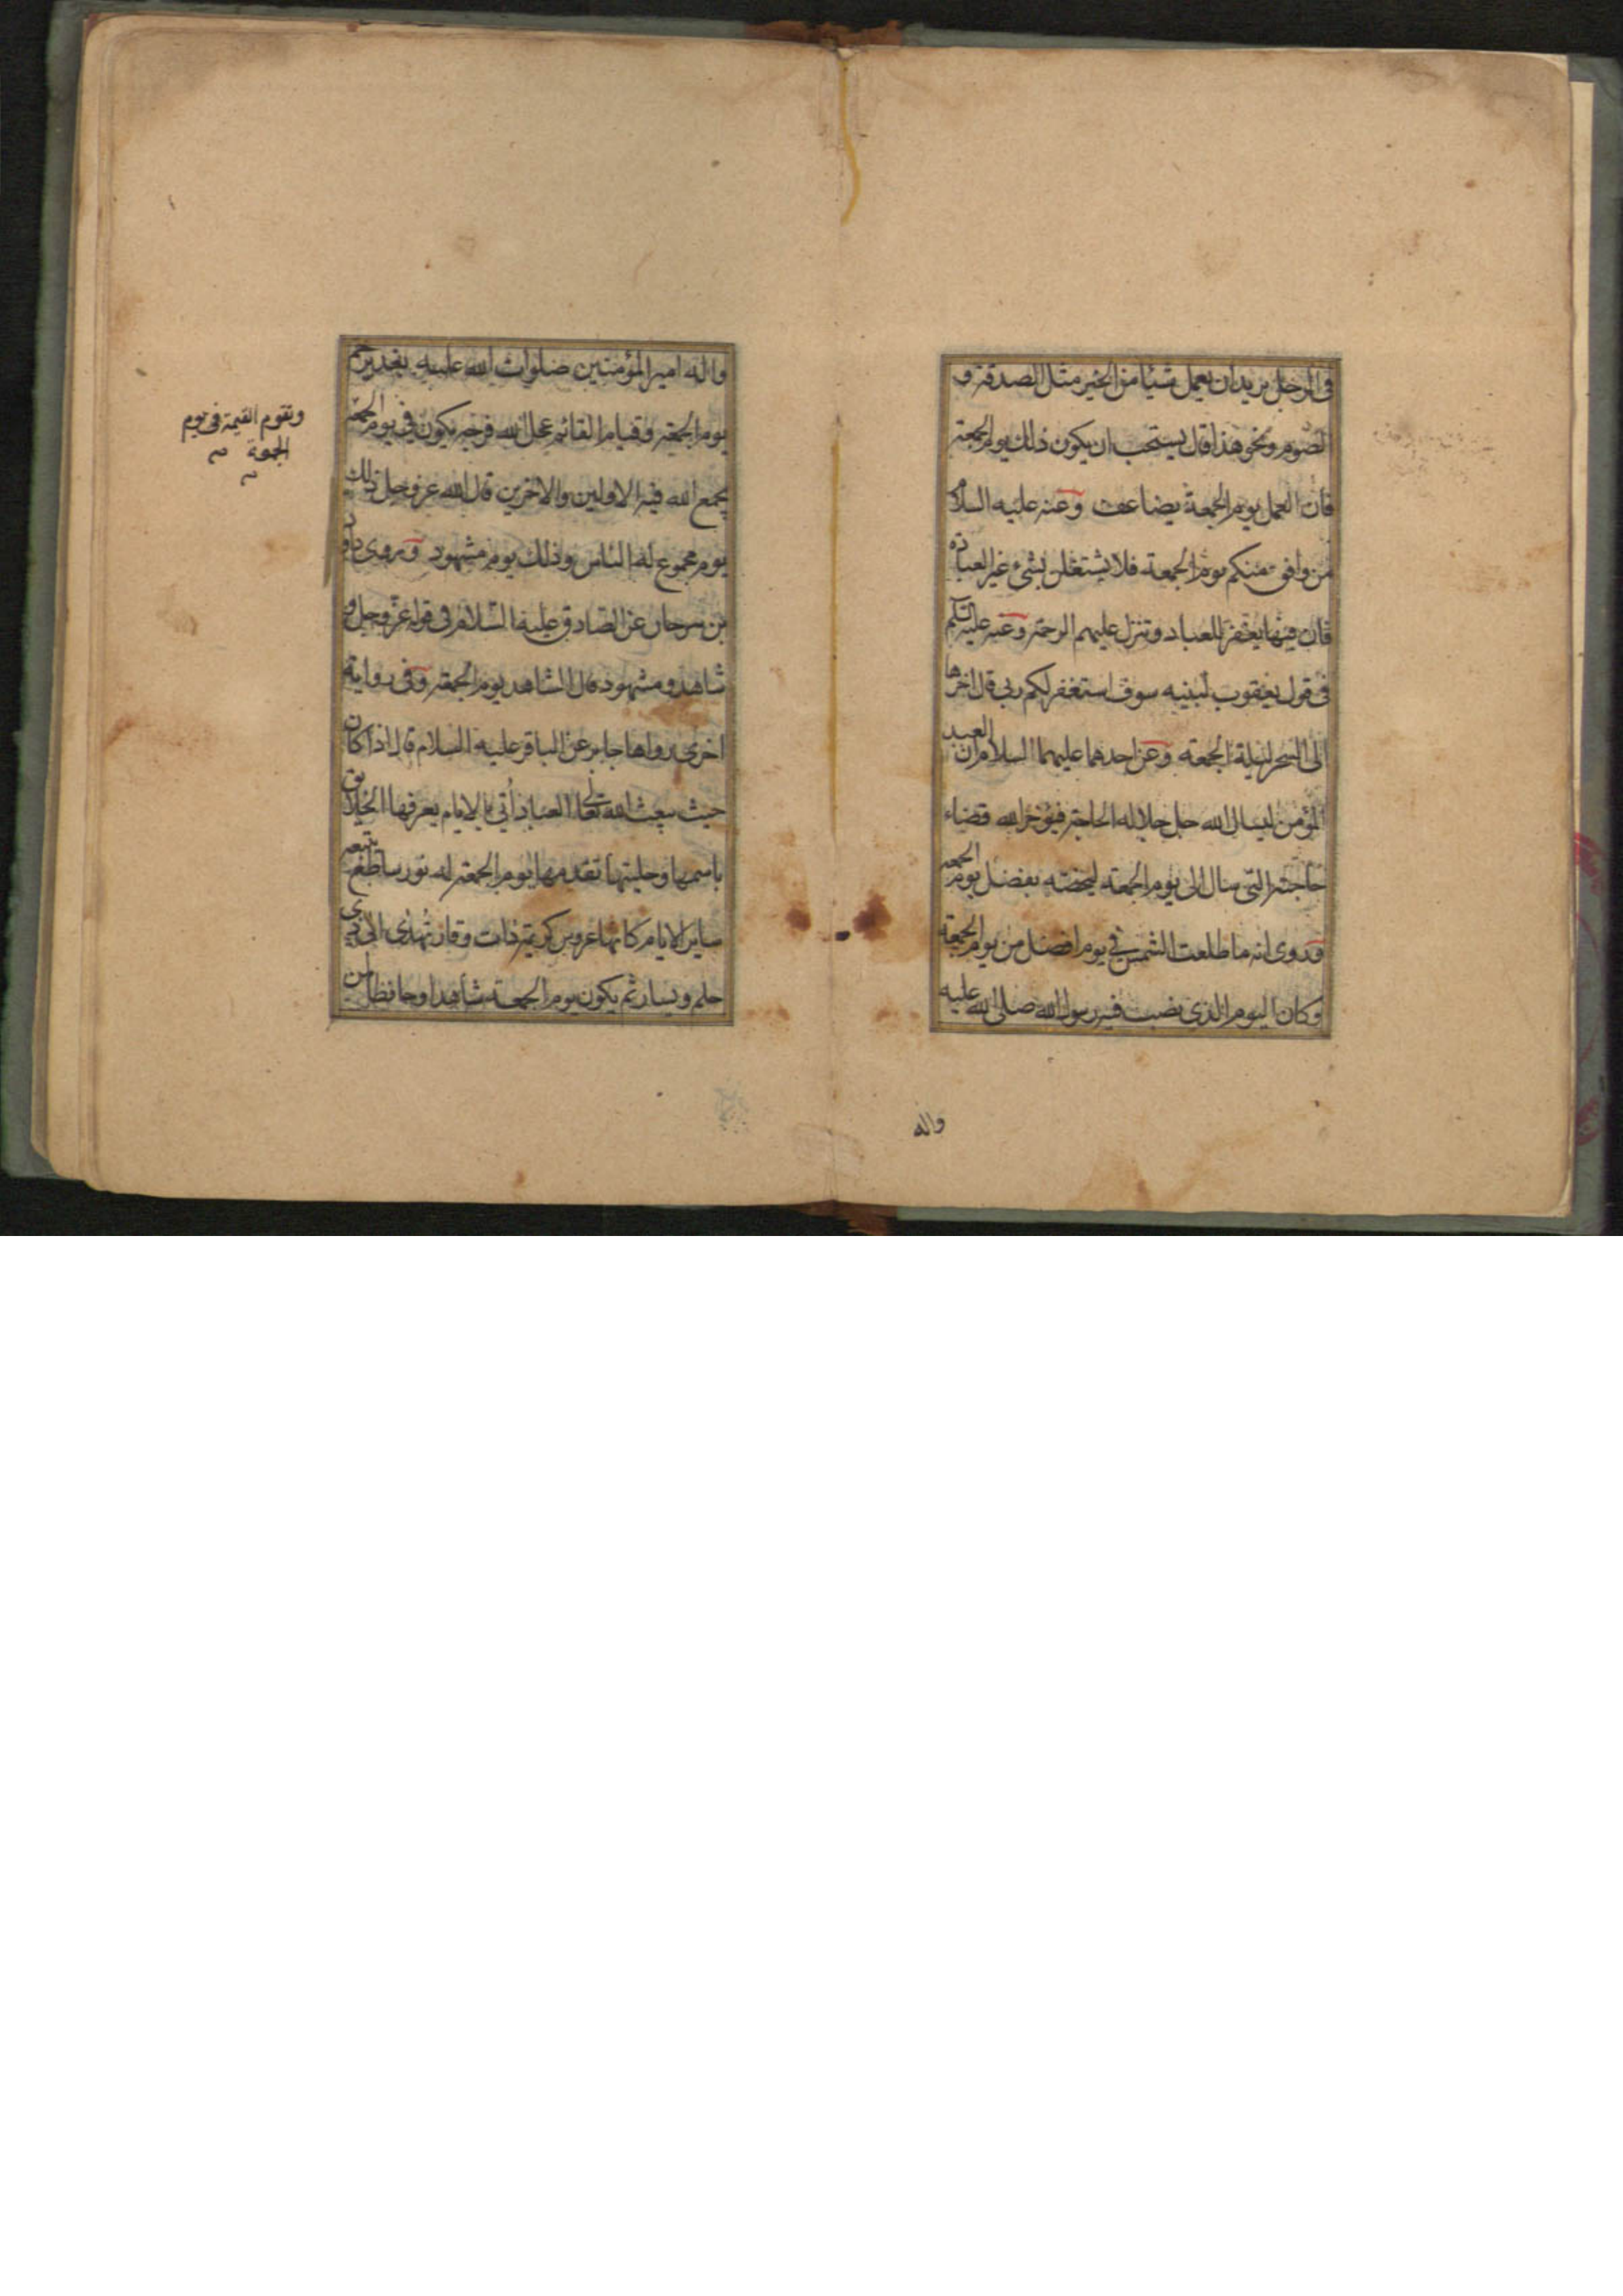 في الرجل يريد ان يعمل شيئا من الخير مثل الصدقة و
الصوم ونحو هذا قال يستحب ان يكون ذلك يوم الجمعة
فان العمل يوم الجمعة يضاعف وعنه عليه السلام
من وافق منكم يوم الجمعة فلا يشتغلن بشئ غير العبادة
فان فيها يغفر للعباد وتنزل عليهم الرحمة وعنه عليه السلام
في قول يعقوب لبنيه سوف استغفر لكم ربي قال اخرها
الى السحر ليلة الجمعة وعن احدهما عليهما السلام ان العبد
المؤمن ليسال الله جل جلاله الحاجة فيؤخر الله قضاء
حاجته التي سال الى يوم الجمعة ليخصه بفضل يوم الجمعة
وروى انه ما طلعت الشمس في يوم افضل من يوم الجمعة
وكان اليوم الذي نصب فيه رسول الله صلى الله عليه
واله
واله امير المؤمنين صلوات الله عليه بغدير خم
يوم الجمعة وقيام القائم عجل الله فرجه يكون في يوم الجمعة
يجمع الله فيه الاولين والاخرين قال الله عز وجل ذلك
يوم مجموع له الناس وذلك يوم مشهود وروى داود
بن سرحان عن الصادق عليه السلام في قوله عز وجل و
شاهد ومشهود قال الشاهد يوم الجمعة وفي رواية
اخرى رواها جابر عن الباقر عليه السلام قال اذا كان
حيث يبعث الله تعالى العباد اتي بالايام يعرفها الخلايق
باسمها وحليتها تقدمها يوم الجمعة له نور ساطع تتبعه
ساير الايام كانها عروس كريمة ذات وقار تهدى الى ذي
حلم ويسار ثم يكون يوم الجمعة شاهدا وحافظا لمن
وتقوم القيمة في يوم
الجمعة